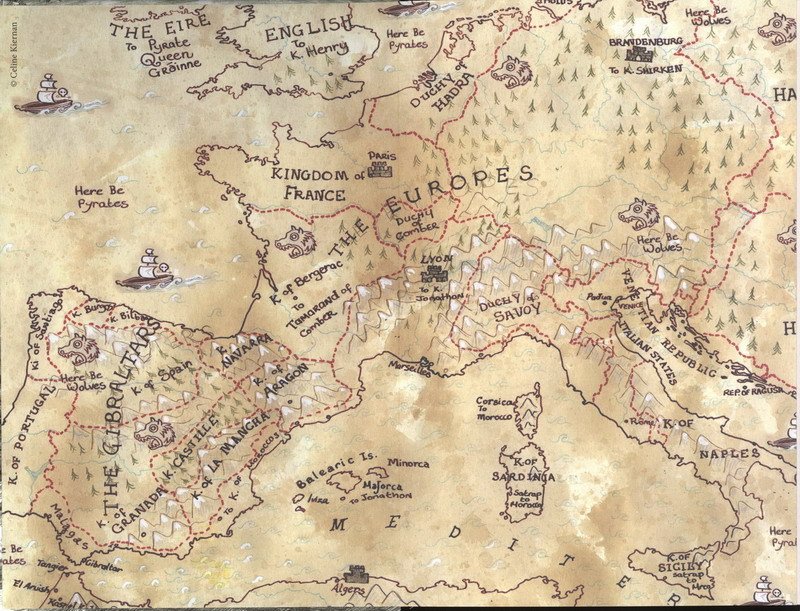 © Celine Kiernan
THE EIRE
To Pyrate
Queen
Gròinne
ENGLISH
To
K. Henry
Here Be
Pyrates
DUCHY of
HADRA
Here Be
Wolves
BRANDENBURG
To K. SHIRKEN
HA
Here Be
Pyrates
KINGDOM of
FRANCE
PARIS
THE EUROPES
DUCHY
of
COMBER
K. of Bergerac
To
Tamarand of
Comber
LYON
To K.
Jonathon
DUCHY of
SAVOY
Here Be
Wolves
Padua
VENICE
VENETIAN REPUBLIC
ITALIAN STATES
REP. of RAGUSA
H
Marseilles
K. of Santiago
K. Burgos
K. Bilbao
K.
NAVARRA
K. of
ARAGON
Here Be
Wolves
K. of Spain
THE GIBRALTARS
K. OF PORTUGAL
K. CASTILLE
K. of LA MANCHA
K. of
GRANADA
To K. of Moroccos
Malagas
Gibraltar
Tangier
El Araish
Here Be
Pyrates
Balearic Is.
Ibiza
Minorca
Majorca
To Jonathon
Corsica
To
Morocco
K. OF
SARDINIA
Satrap
to
Rome
K. OF
NAPLES
K. of
SICILY
satrap
to
Here Be
MEDITER
Algers